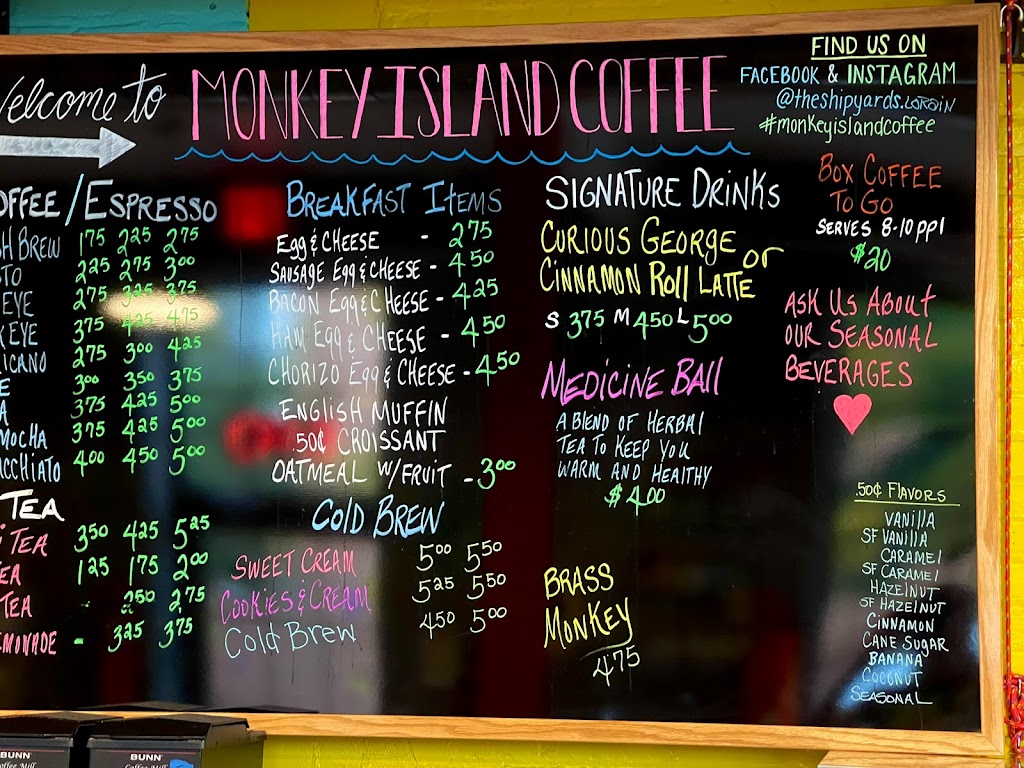 Welcome to MONKEY ISLAND COFFEE
FIND US ON
FACEBOOK & INSTAGRAM
@theshipyards.LORAIN
#monkeyislandcoffee
OFFEE / ESPRESSO
SH BREW 175 225 275
STO 225 275 300
EYE 275 325 375
KEYE 375 425 475
ICANO 275 300 425
E 300 350 375
A 375 425 500
MOCHA 375 425 500
ACCHIATO 400 450 500
TEA
I TEA 350 425 525
EA 125 175 200
TEA - 250 275
EMONADE - 325 375
BREAKFAST ITEMS
EGG & CHEESE - 275
SAUSAGE EGG & CHEESE - 450
BACON EGG & CHEESE - 425
HAM EGG & CHEESE - 450
CHORIZO EGG & CHEESE - 450
ENGLISH MUFFIN
.50¢ CROISSANT
OATMEAL W/FRUIT - 300
COLD BREW
SWEET CREAM 500 550
COOKIES & CREAM 525 550
Cold Brew 450 500
SIGNATURE DRINKS
CURIOUS GEORGE or
CINNAMON ROLL LATTE
S 375 M 450 L 500
MEDICINE BALL
A BLEND OF HERBAL
TEA TO KEEP YOU
WARM AND HEALTHY
$4.00
BRASS
MONKEY
475
BOX COFFEE
TO GO
SERVES 8-10 PPL
$20
ASK US ABOUT
OUR SEASONAL
BEVERAGES
.50¢ FLAVORS
VANILLA
SF VANILLA
CARAMEL
SF CARAMEL
HAZELNUT
SF HAZELNUT
CINNAMON
CANE SUGAR
BANANA
COCONUT
SEASONAL
BUNN
Coffee Mill
BUNN
Coffee Mill